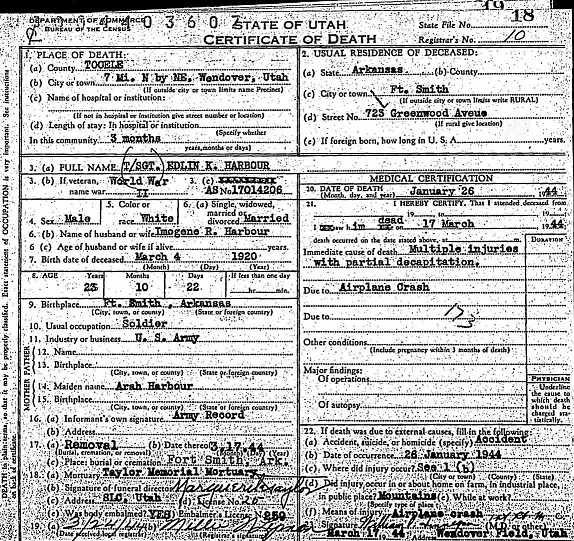 19 18
DEPARTMENT OF COMMERCE
BUREAU OF THE CENSUS
4403607
STATE OF UTAH
CERTIFICATE OF DEATH
State File No.
Registrar's No. 10
1. PLACE OF DEATH:
(a) County TOOELE
(b) City or town 7 Mi. N by NE. Wendover, Utah
(If outside city or town limits name Precinct)
(c) Name of hospital or institution:
(If not in hospital or institution give street number or location)
(d) Length of stay: In hospital or institution
(Specify whether
In this community 3 months
years, months or days)
2. USUAL RESIDENCE OF DECEASED:
(a) State Arkansas (b) County
(c) City or town Ft. Smith
(If outside city or town limits write RURAL)
(d) Street No. 723 Greenwood Aveue
(If rural give location)
(e) If foreign born, how long in U. S. A. years.
3. (a) FULL NAME (T/SGT. EDLIN K. HARBOUR
3. (b) If veteran, name war World War II
3. (c) ASNo17014206
4. Sex Male
5. Color or race White
6. (a) Single, widowed, married or divorced Married
6. (b) Name of husband or wife Imogene R. Harbour
6. (c) Age of husband or wife if alive years.
7. Birth date of deceased March 4 1920
(Month) (Day) (Year)
8. AGE Years Months Days If less than one day
23 10 22 min.
9. Birthplace Ft. Smith, Arkansas
(City, town, or county) (State or foreign country)
10. Usual occupation Soldier
11. Industry or business U. S. Army
FATHER
12. Name
13. Birthplace
(City, town, or county) (State or foreign country)
MOTHER
14. Maiden name Arah Harbour
15. Birthplace
(City, town, or county) (State or foreign country)
16. (a) Informant's own signature Army Record
(b) Address
17. (a) Removal (b) Date thereof 3 17 44
(Burial, cremation, or removal) (Month) (Day) (Year)
(c) Place: burial or cremation Fort Smith Ark.
18. (a) Mortuary Taylor Memorial Mortuary
(b) Signature of funeral director
(c) Address SLC, Utah (d) License No. 20
(e) Was body embalmed? YES Embalmer's License No. 250
19. (a) 3/24/44 (b)
(Date received local registrar) (Registrar's signature)
MEDICAL CERTIFICATION
20. DATE OF DEATH January 26 1944
(Month, day, and year)
21. I HEREBY CERTIFY, That I attended deceased from
I saw him dead on 17 March 1944
death occurred on the date stated above, at m.
DURATION
Immediate cause of death Multiple injuries
with partial decapitation.
Due to Airplane Crash
Due to
Other conditions
(Include pregnancy within 3 months of death)
Major findings:
Of operations
Of autopsy
PHYSICIAN
Underline the cause to which death should be charged statistically.
22. If death was due to external causes, fill in the following:
(a) Accident, suicide, or homicide (specify) Accident
(b) Date of occurrence 26 January 1944
(c) Where did injury occur? See 1 (b)
(City or town) (County) (State)
(d) Did injury occur in or about home on farm, in industrial place,
in public place? Mountains (e) While at work?
(Specify type of place)
(f) Means of injury Airplane crash
Signature (M.D. or other)
March 17, 44 Wendover Field, Utah